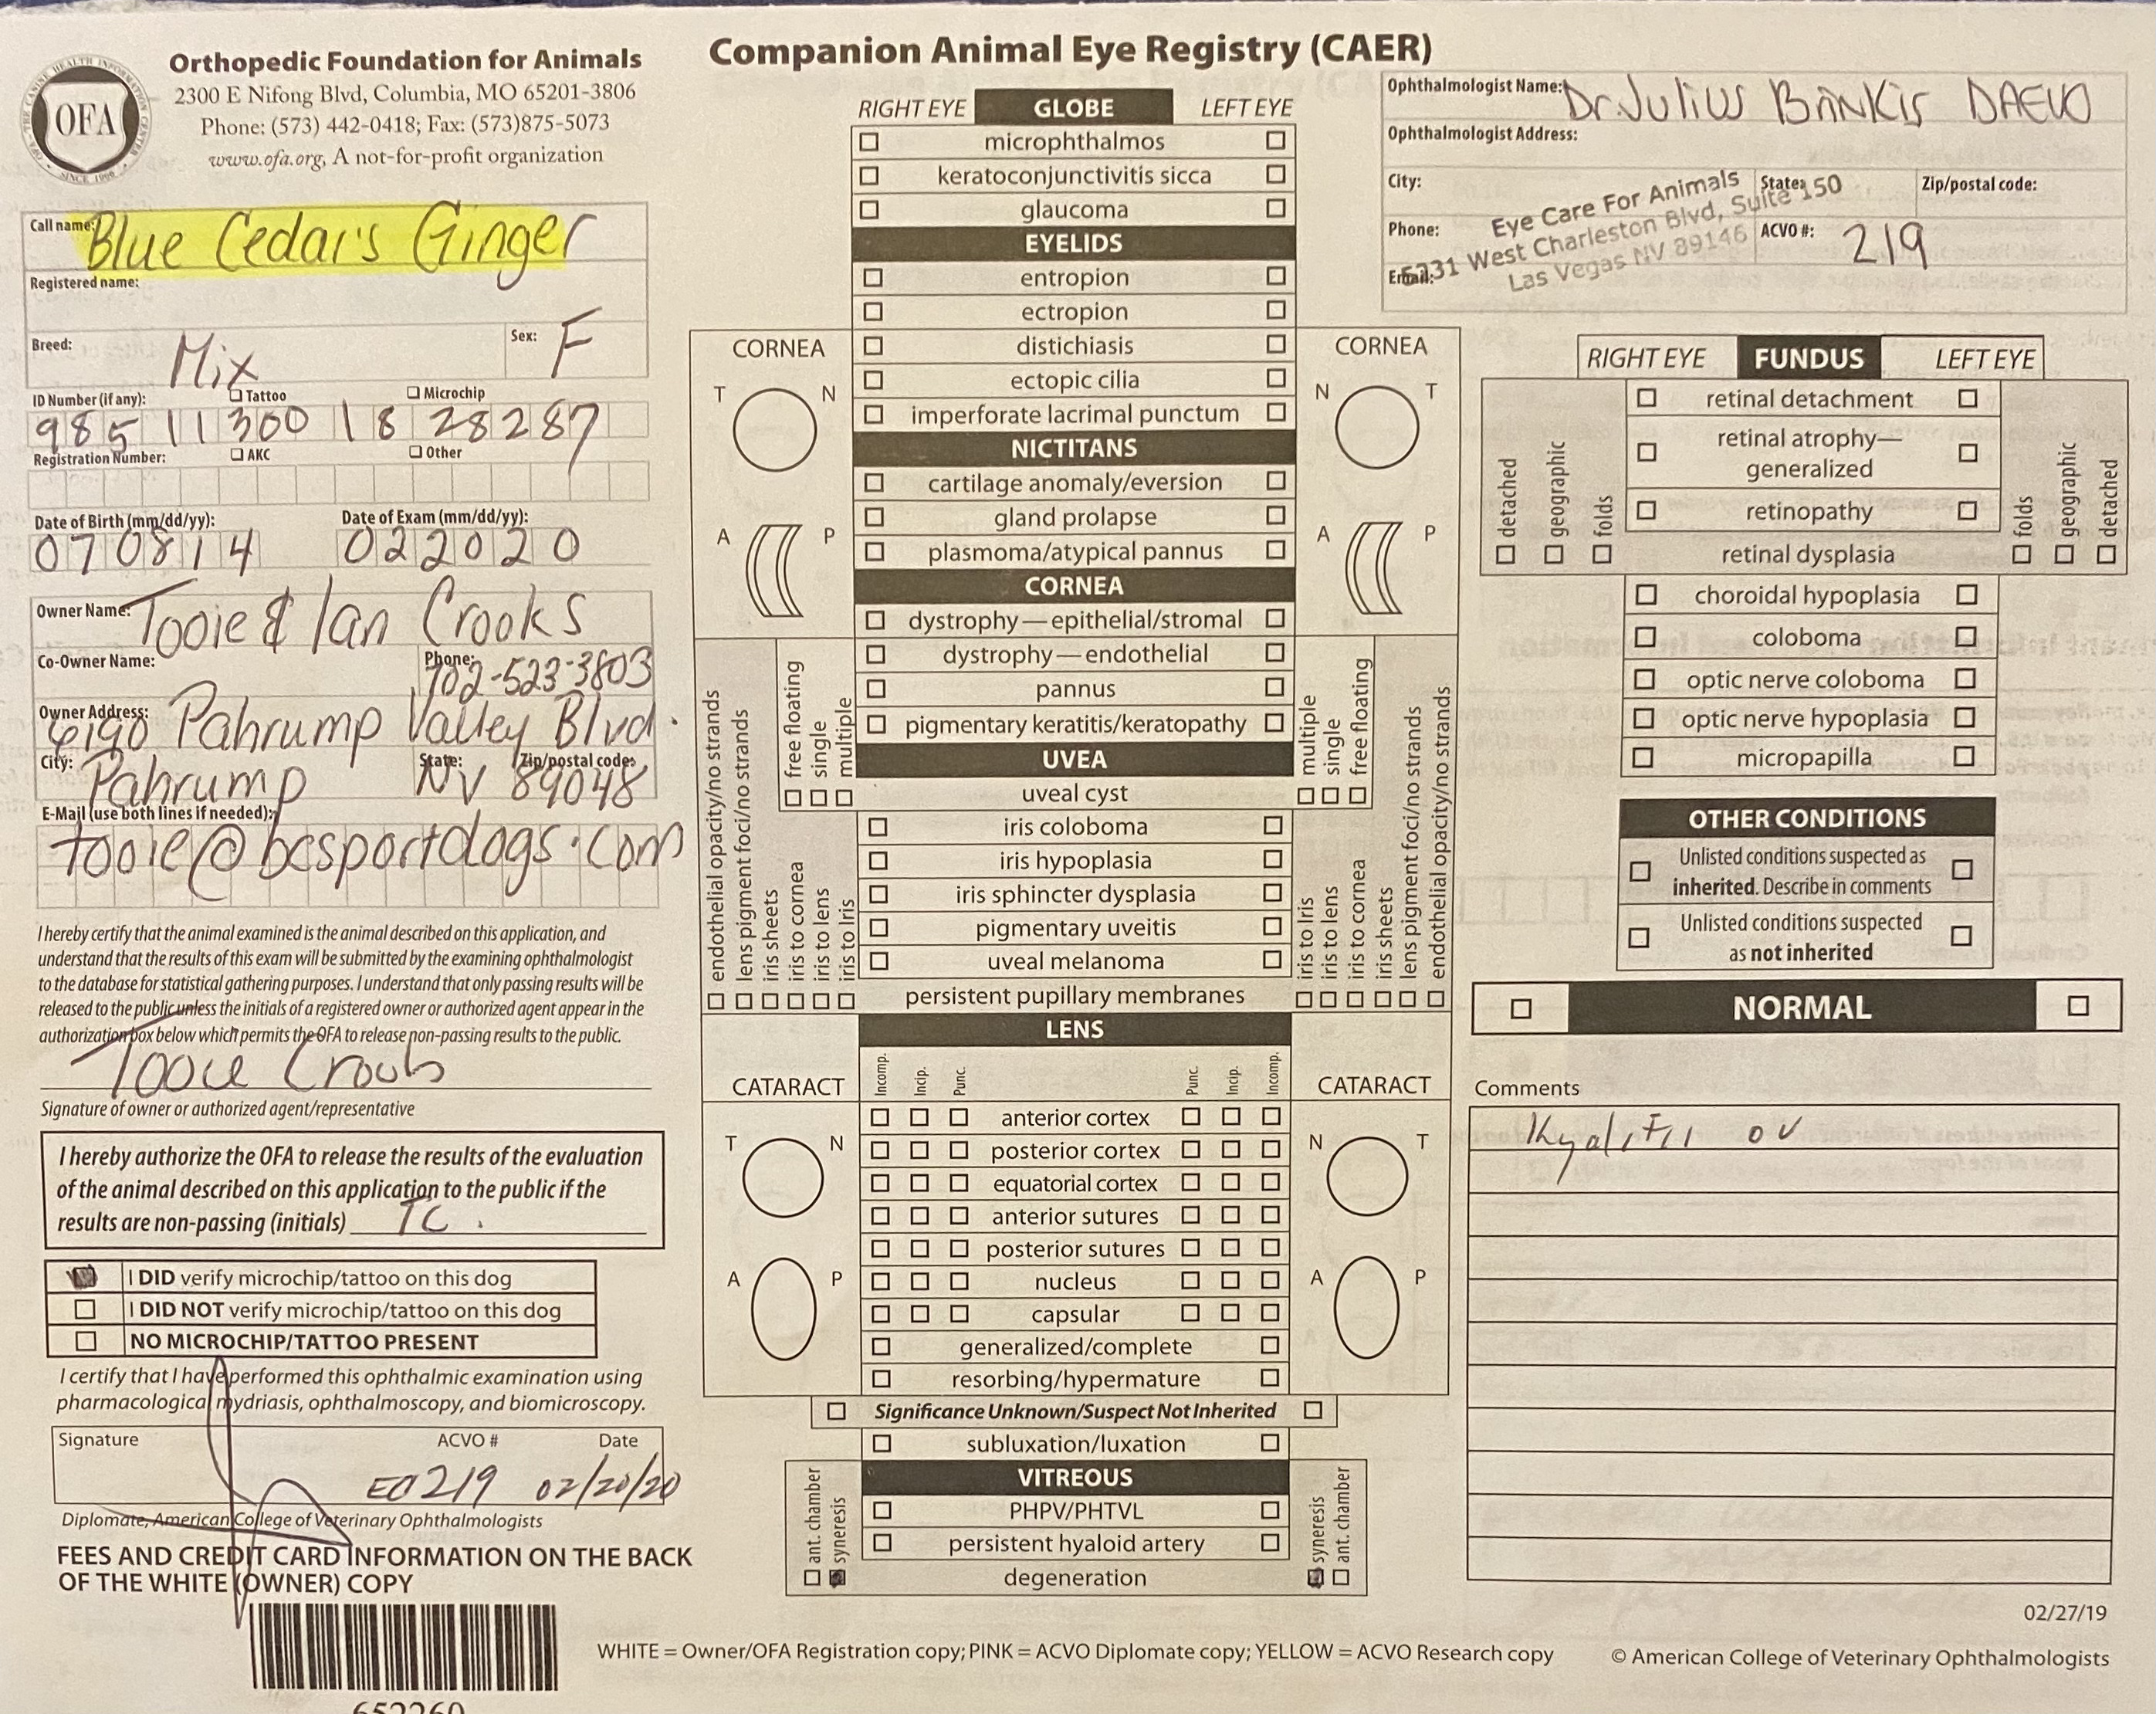 Companion Animal Eye Registry (CAER)
OFA
SINCE 1966
Orthopedic Foundation for Animals
2300 E Nifong Blvd, Columbia, MO 65201-3806
Phone: (573) 442-0418; Fax: (573)875-5073
www.ofa.org, A not-for-profit organization
Call name: Blue Cedar's Ginger
Registered name:
Breed: Mix Sex: F
ID Number (if any): Tattoo Microchip
985 11 300 18 28287
Registration Number: AKC Other
Date of Birth (mm/dd/yy): Date of Exam (mm/dd/yy):
070814 022020
Owner Name: Tooie & Ian Crooks
Co-Owner Name: Phone: 702-523-3803
Owner Address: 6190 Pahrump Valley Blvd.
City: Pahrump State: NV Zip/postal code: 89048
E-Mail (use both lines if needed):
tooie@bcsportdogs.com
I hereby certify that the animal examined is the animal described on this application, and
understand that the results of this exam will be submitted by the examining ophthalmologist
to the database for statistical gathering purposes. I understand that only passing results will be
released to the public unless the initials of a registered owner or authorized agent appear in the
authorization box below which permits the OFA to release non-passing results to the public.
Tooie Crooks
Signature of owner or authorized agent/representative
I hereby authorize the OFA to release the results of the evaluation
of the animal described on this application to the public if the
results are non-passing (initials) TC.
I DID verify microchip/tattoo on this dog
I DID NOT verify microchip/tattoo on this dog
NO MICROCHIP/TATTOO PRESENT
I certify that I have performed this ophthalmic examination using
pharmacological mydriasis, ophthalmoscopy, and biomicroscopy.
Signature ACVO # Date
EC219 02/20/20
Diplomate, American College of Veterinary Ophthalmologists
FEES AND CREDIT CARD INFORMATION ON THE BACK
OF THE WHITE (OWNER) COPY
652260
RIGHT EYE GLOBE LEFT EYE
microphthalmos
keratoconjunctivitis sicca
glaucoma
EYELIDS
entropion
ectropion
distichiasis
ectopic cilia
imperforate lacrimal punctum
NICTITANS
cartilage anomaly/eversion
gland prolapse
plasmoma/atypical pannus
CORNEA
dystrophy—epithelial/stromal
dystrophy—endothelial
pannus
pigmentary keratitis/keratopathy
UVEA
uveal cyst
iris coloboma
iris hypoplasia
iris sphincter dysplasia
pigmentary uveitis
uveal melanoma
persistent pupillary membranes
LENS
Incomp. Incip. Punc. Punc. Incip. Incomp.
anterior cortex
posterior cortex
equatorial cortex
anterior sutures
posterior sutures
nucleus
capsular
generalized/complete
resorbing/hypermature
Significance Unknown/Suspect Not Inherited
subluxation/luxation
VITREOUS
PHPV/PHTVL
persistent hyaloid artery
degeneration
CORNEA
T N
A P
free floating
single
multiple
endothelial opacity/no strands
lens pigment foci/no strands
iris sheets
iris to cornea
iris to lens
iris to Iris
CATARACT
T N
A P
ant. chamber
syneresis
CORNEA
N T
A P
multiple
single
free floating
iris to Iris
iris to lens
iris to cornea
iris sheets
lens pigment foci/no strands
endothelial opacity/no strands
CATARACT
N T
A P
syneresis
ant. chamber
Ophthalmologist Name: Dr. Julius Bankis DAEVO
Ophthalmologist Address:
City: State: Zip/postal code:
Phone: ACVO #: 219
Email:
Eye Care For Animals
5231 West Charleston Blvd, Suite 150
Las Vegas NV 89146
RIGHT EYE FUNDUS LEFT EYE
retinal detachment
retinal atrophy—
generalized
retinopathy
retinal dysplasia
detached
geographic
folds
folds
geographic
detached
choroidal hypoplasia
coloboma
optic nerve coloboma
optic nerve hypoplasia
micropapilla
OTHER CONDITIONS
Unlisted conditions suspected as
inherited. Describe in comments
Unlisted conditions suspected
as not inherited
NORMAL
Comments
02/27/19
WHITE = Owner/OFA Registration copy; PINK = ACVO Diplomate copy; YELLOW = ACVO Research copy
© American College of Veterinary Ophthalmologists